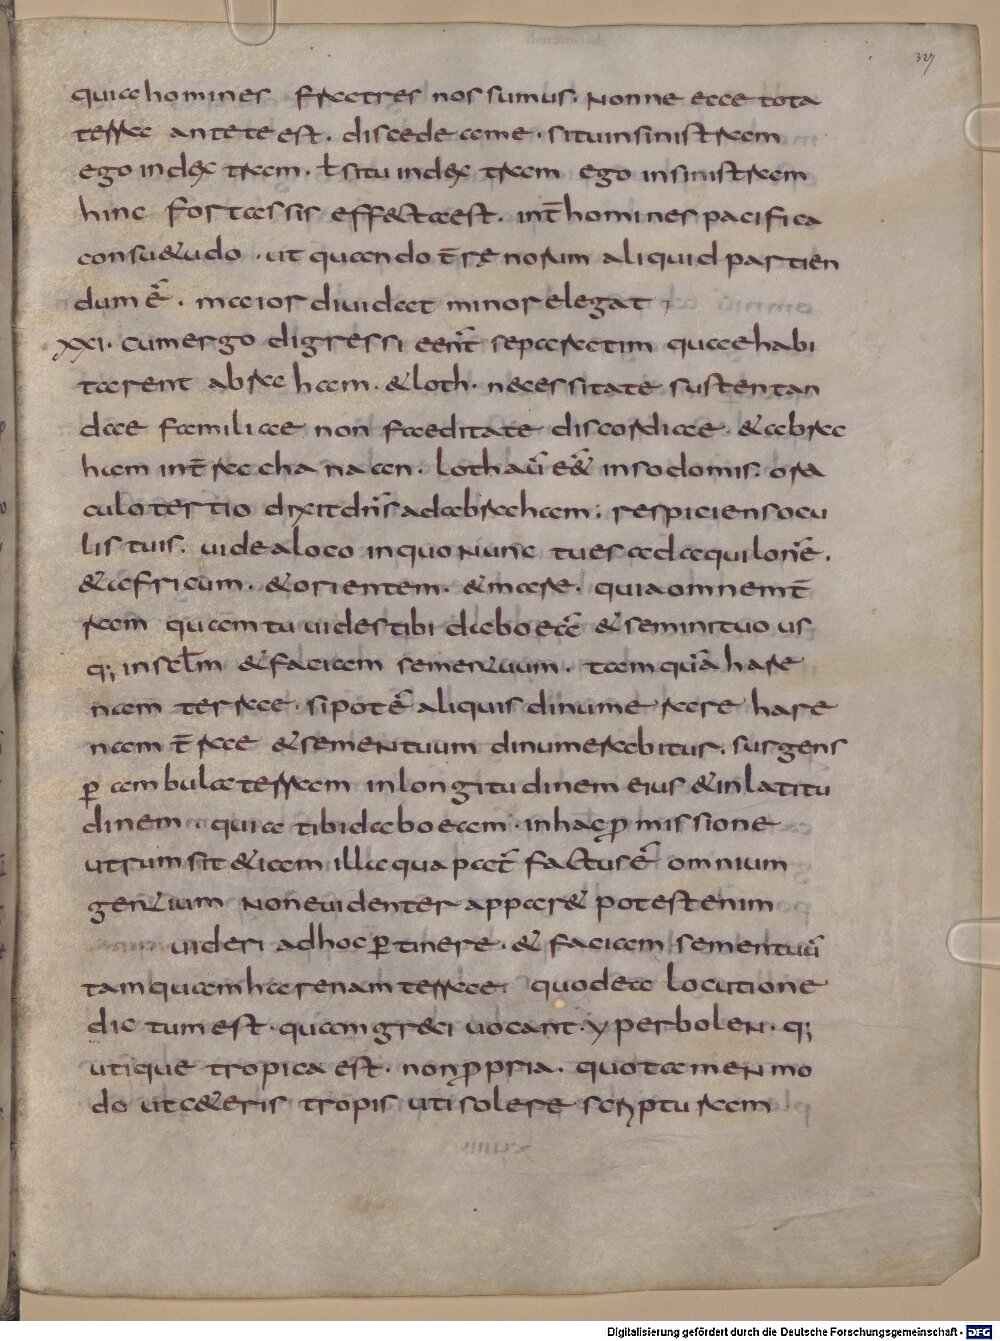 327
quia homines fratres nos sumus. Nonne ecce tota
terra ante te est. discede a me. si tu in sinistram
ego in dextram. ł si tu in dextram ego in sinistram
hinc fortassis effecta est. int̄ homines pacifica
consu&udo. ut quando t̄rę norum aliquid partien
dum ē. maior diuidat minor elegat,
XXI. Cum ergo digressi eēnt separatim quae habi
tarent abraham. & loth. necessitate sustentan
dae familiae non faeditate discordiae. & abra
ham in t̄ra chanaan. loth aū eē& in sodomis. ora
culo tertio dixit dn̄s ad abraham; respiciens ocu
lis tuis. uide a loco in quo Nunc tu es ad aquilonē.
& africum. & orientem. & mare. quia omnem t̄
ram quam tu uides tibi dabo eā & semini tuo us
q; in sc̄lm & faciam semen tuum. tamquā hare
nam terrae. si potē aliquis dinumerare hare
nam t̄rae & semen tuum dinumerabitur. surgens
p̱ambula terram in longitudinem eius & in latitu
dinem. quia tibi dabo eam. in hac p̱missione
utrum sit &iam illa qua pat̄ factus ē omnium
gentium Non euidenter appar& potest enim
uideri ad hoc p̱tinere. & faciam semen tuū
tamquam harenam terrae. quod ea locutione
dictum est. quam greci uocant. yperbolen. q;
utique tropica est. non p̱pria. quo tamen mo
do ut c&eris tropis uti solere scripturam
Digitalisierung gefördert durch die Deutsche Forschungsgemeinschaft - DFG